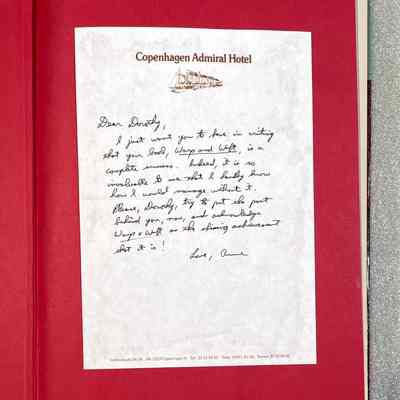 Copenhagen Admiral Hotel
Dear Dorothy,
I just want you to have in writing
that your book, Warp and Weft, is a
complete success. Indeed, it is so
invaluable to me that I hardly know
how I would manage without it.
Please, Dorothy, try to put the past
behind you, now, and acknowledge
Warp & Weft as the shining achievement
that it is!
Love, Anne